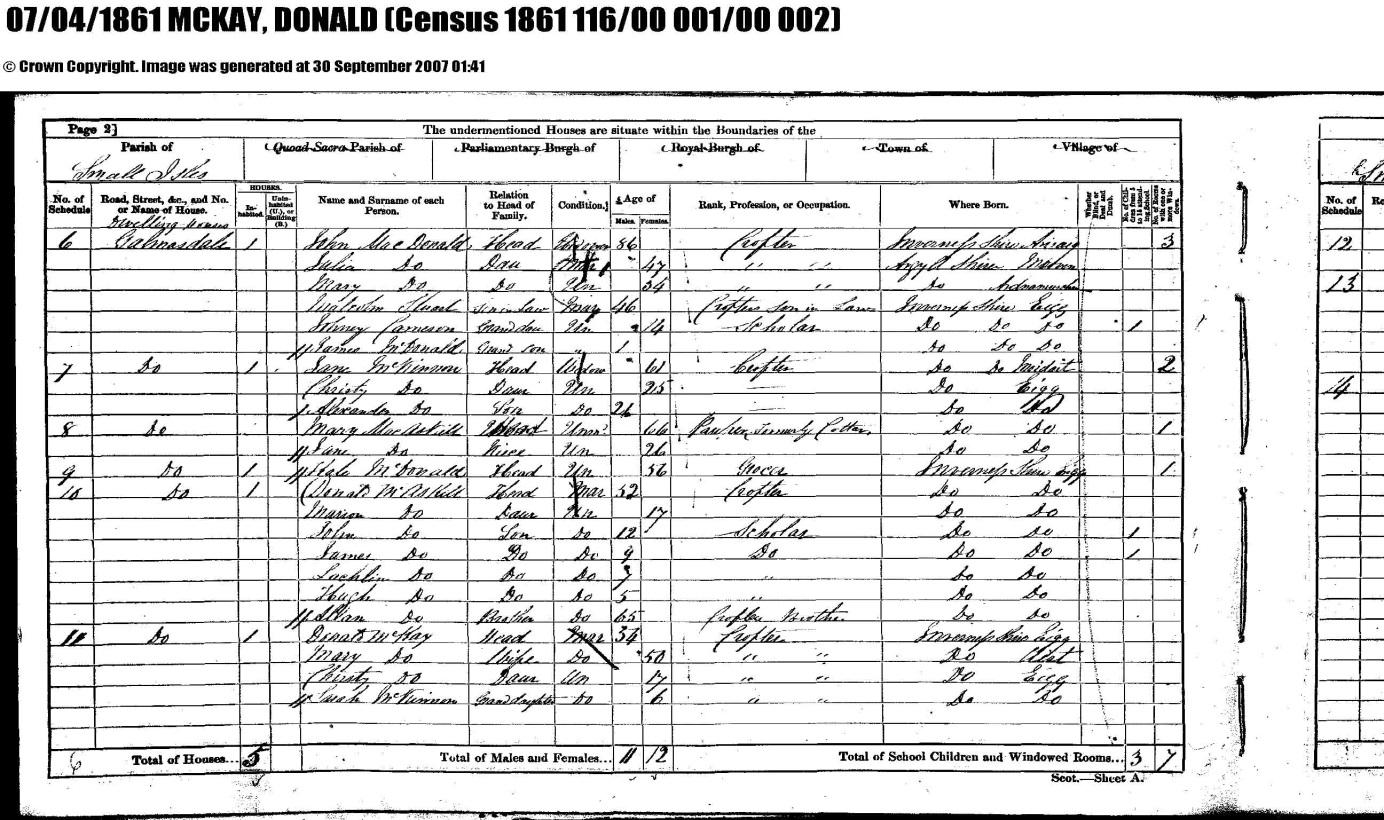 07/04/1861 MCKAY, DONALD (Census 1861 116/00 001/00 002)
© Crown Copyright. Image was generated at 30 September 2007 01:41
Page 2] The undermentioned Houses are situate within the Boundaries of the
Parish of Quoad Sacra Parish of Parliamentary Burgh of Royal Burgh of Town of Village of
Small Isles
No. of Schedule Road, Street, &c., and No. or Name of House. HOUSES. Inhabited. Uninhabited (U.), or Building (B.) Name and Surname of each Person. Relation to Head of Family. Condition. Age of Males. Females. Rank, Profession, or Occupation. Where Born. Whether Blind, or Deaf and Dumb. No. of Schedule
Dwelling Houses
6 Galmasdale 1 John MacDonald Head 86 Crofter Inverness Shire Arisaig 3 12
Julia Do Dau 47 " " Argyll Shire
Mary Do Do Un 34 " " Do Ardnamurchan 13
Malcolm Stuart Son in Law Mar 46 Crofters Son in Law Inverness Shire Eigg
Cameron Grand dau Un 14 Scholar Do Do Do 1
James McDonald Grand son " 1 Do Do Do
7 Do 1 Jane McKinnon Head Widow 61 Crofter Do Do 2
Christy Do Daur Un 25 Do Eigg 14
Alexander Do Son Do 26 Do Do
8 Do Mary MacAskill Head Unm. 66 Pauper Formerly Cottar Do Do 1
Jane Do Niece Un 26 Do Do
9 Do 1 McDonald Head Un 56 Inverness Shire Eigg 1
10 Do 1 Donald McAskill Head Mar 52 Crofter Do Do
Marion Do Daur Un 17 Do Do
John Do Son Do 12 Scholar Do Do 1
James Do Do Do 9 Do Do Do 1
Lachlin Do Do Do 7 " Do Do
Hugh Do Do Do 5 " Do Do
Allan Do Brother Do 65 Crofters Brother Do Do
11 Do 1 Donald McKay Head Mar 54 Crofter Inverness Shire Eigg
Mary Do Wife Do 50 " " Do Uist
Christy Do Daur Un 17 " " Do Eigg
Sarah McKinnon Grand daughter Do 6 " " Do Do
6 Total of Houses... 5 Total of Males and Females... 11 12 Total of School Children and Windowed Rooms... 3 7
Scot.—Sheet A.